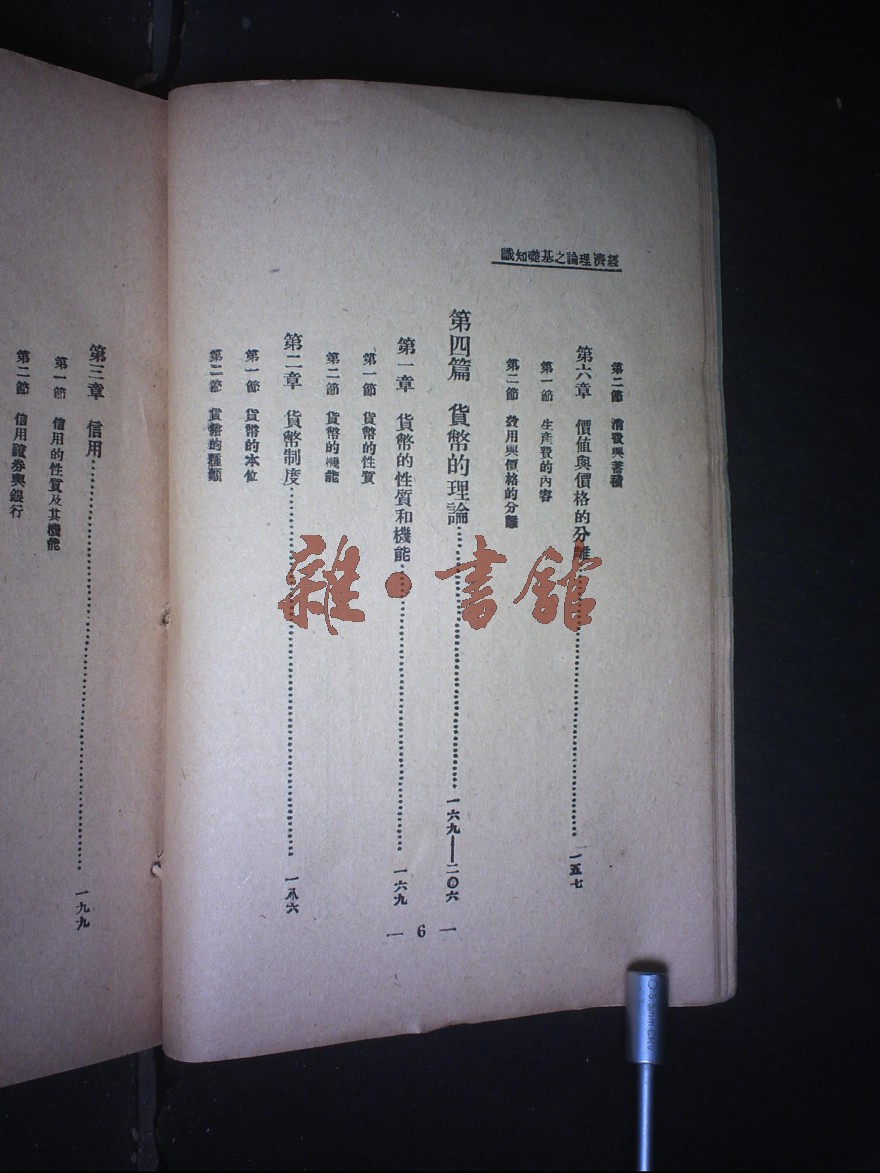 經濟理論之基礎知識
第二節 消費與蓄積
第六章 價值與價格的分離 一五七
第一節 生產費的內容
第二節 效用與價格的分離
第四篇 貨幣的理論 一六九—二〇六
第一章 貨幣的性質和機能 一六九
第一節 貨幣的性質
第二節 貨幣的機能
第二章 貨幣制度 一八六
第一節 貨幣的本位
第二節 貨幣的種類
— 6 —
第三章 信用 一九九
第一節 信用的性質及其機能
第二節 信用證券與銀行
雜·書館
5.5mm CRV